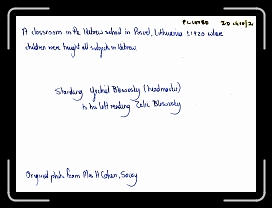 PL
A classroom in the Hebrew school in Posvel, Lithuania c1920 where
children were taught all subjects in Hebrew.
Standing Yechiel Blesovsky (headmaster)
to his left reading Zelic Blesovsky
Original photo from Mrs H Cohen, Savoy